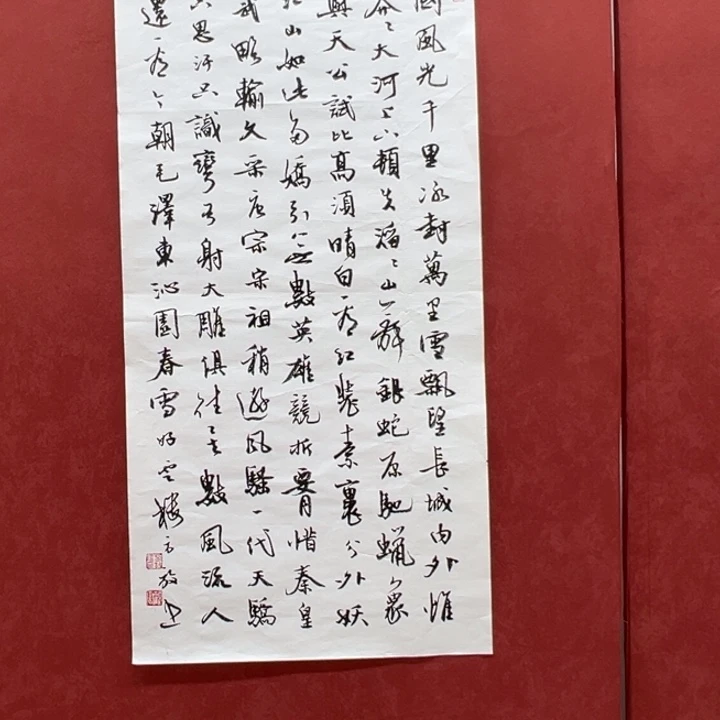 國風光千里冰封萬里雪飄望長城内外惟
莽〻大河上下頓失滔〻山舞銀蛇原馳蠟象
與天公試比高須晴日看紅裝素裹分外妖
江山如此多嬌引無數英雄競折腰惜秦皇
武略輸文采唐宗宋祖稍遜風騷一代天驕
思汗只識彎弓射大雕俱往矣數風流人
還看今朝毛澤東沁園春雪